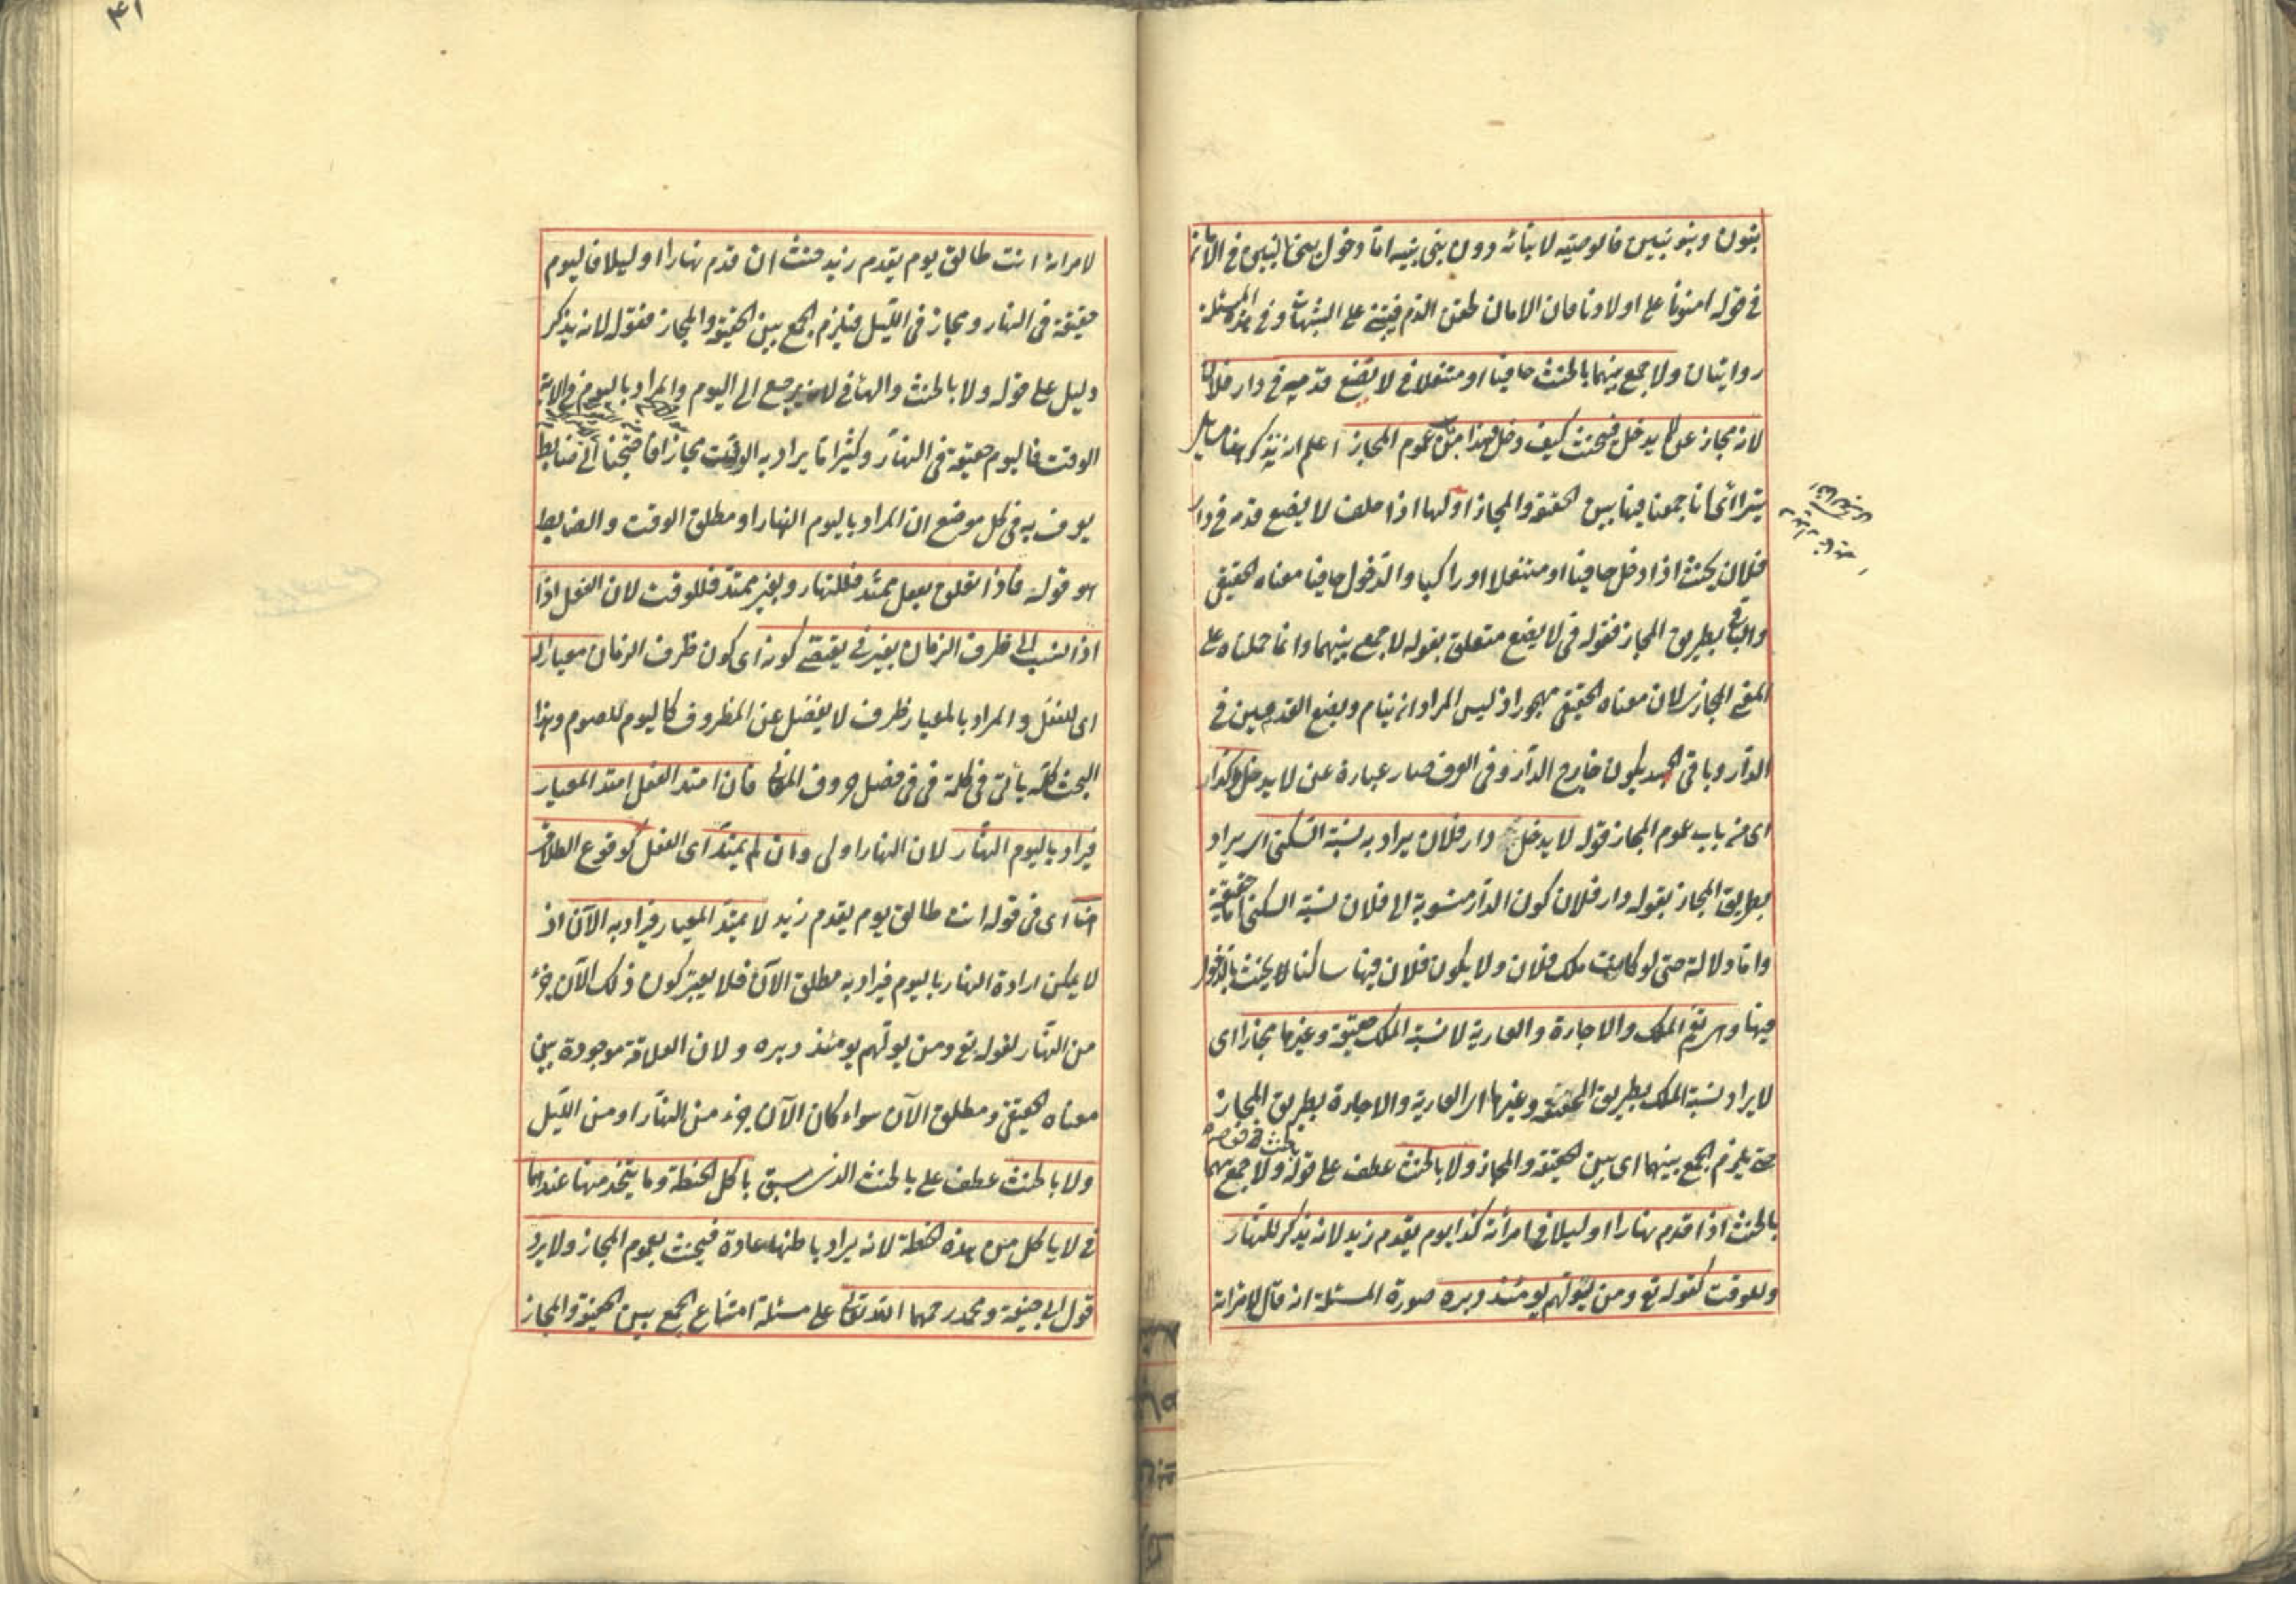 بنون وبنو بنين فالوصية لابنائه دون بنى بنيه اما دخول بنى البنين فى الامان
فى قوله امنونا على اولادنا فان الامان لحقن الدم فيبتنى على الشبهات وفى هذه المسئلة
روايتان ولا جمع بينهما بالحنث حافيا او متنعلا فى لا يضع قدميه فى دار فلان
لانه مجاز عن لا يدخل فيحنث كيف دخل فهذا من عموم المجاز اعلم انه يذكر هنا مسائل
يتراآى انا جمعنا فيها بين الحقيقة والمجاز اولها اذا حلف لا يضع قدمه فى دار
فلان يحنث اذا دخل حافيا او متنعلا او راكبا والدخول حافيا معناه الحقيقى
والباقى بطريق المجاز فقوله فى لا يضع متعلق بقوله لا جمع بينهما وانما حملناه على
المعنى المجازى لان معناه الحقيقى مهجور اذ ليس المراد ان ينام ويضع القدمين فى
الدار وباقى الجسد يكون خارج الدار وفى العرف صار عبارة عن لا يدخل وكذا
اى من باب عموم المجاز قوله لا يدخل دار فلان يراد به نسبة السكنى اى يراد
بطريق المجاز بقوله دار فلان كون الدار منسوبة الى فلان نسبة السكنى اما حقيقة
واما دلالة حتى لو كانت ملك فلان ولا يكون فلان فيها ساكنا لا يحنث بالدخول
فيها وهى تعم الملك والاجارة والعارية لا نسبة الملك حقيقة وغيرها مجازا اى
لا يراد نسبة الملك بطريق الحقيقة وغيرها اى العارية والاجارة بطريق المجاز
حتى يلزم الجمع بينهما اى بين الحقيقة والمجاز ولا بالحنث عطف على قوله ولا جمع بينهما
بالحنث اذا قدم نهارا او ليلا فى امرأته كذا يوم يقدم زيد لانه يذكر للنهار
وللوقت كقوله تع ومن يولهم يومئذ دبره صورة المسئلة انه قال لامراته
لامراته انت طالق يوم يقدم زيد حنث ان قدم نهارا او ليلا فاليوم
حقيقة فى النهار ومجاز فى الليل فيلزم الجمع بين الحقيقة والمجاز فقوله لانه يذكر
دليل على قوله ولا بالحنث والهاء فى لانه يرجع الى اليوم والمراد باليوم فى الاية
الوقت فاليوم حقيقة فى النهار وكثيرا ما يراد به الوقت مجازا فاحتجنا الى ضابط
يعرف به فى كل موضع ان المراد باليوم النهار او مطلق الوقت والضابط
هو قوله فاذا تعلق بفعل ممتد فللنهار وبغير ممتد فللوقت لان الفعل اذا
اذا نسب الى ظرف الزمان بغير فى يقتضى كونه اى كون ظرف الزمان معيارا له
اى للفعل والمراد بالمعيار ظرف لا يفضل عن المظروف كاليوم للصوم وهذا
البحث كله يأتى فى كلمة فى فى فصل حروف المعانى فان امتد الفعل امتد المعيار
فيراد باليوم النهار لان النهار اولى وان لم يمتد اى الفعل كوقوع الطلاق
هنا اى فى قوله انت طالق يوم يقدم زيد لا يمتد المعيار فيراد به الآن اذ
لا يمكن ارادة النهار باليوم فيراد به مطلق الآن فلا يعتبر كون ذلك الآن جزء
من النهار لقوله تع ومن يولهم يومئذ دبره ولان العلاقة موجودة بين
معناه الحقيقى ومطلق الآن سواء كان الآن جزء من النهار او من الليل
ولا بالحنث عطف على بالحنث الذى سبق باكل الحنطة وما يتخذ منها عندهما
فى لا ياكل من هذه الحنطة لانه يراد باطنها عادة فيحنث بعموم المجاز ولا يرد
قول ابى حنيفة ومحمد رحمهما الله تعالى على مسئلة امتناع الجمع بين الحقيقة والمجاز